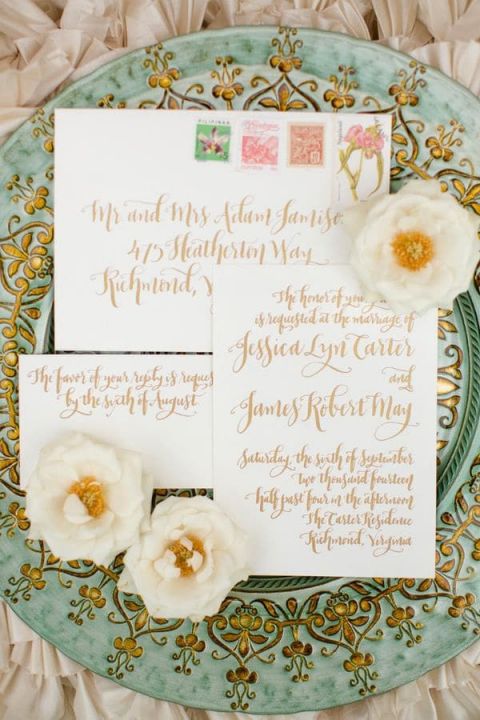 PILIPINAS
Mr and Mrs Adam
475 Heatherton Way
Richmond,
The honor of
is requested at the marriage of
Jessica Lyn Carter
and
James Robert May
Saturday, the sixth of September
two thousand fourteen
half past four in the afternoon
The Carter Residence
Richmond, Virginia
The favor of your reply is
by the sixth of August